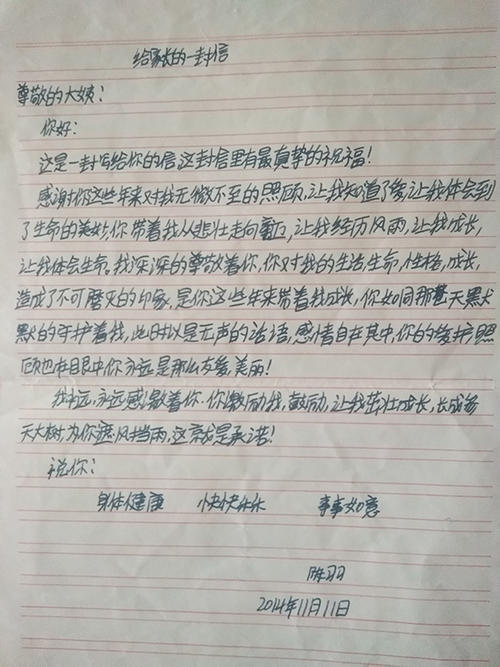 给家长的一封信
尊敬的大姨：
你好：
这是一封写给你的信这封信里有最真挚的祝福！
感谢你这些年来对我无微不至的照顾，让我知道了爱，让我体会到
了生命的美妙，你带着我从悲壮走向，让我经历风雨，让我成长，
让我体会生命。我深深的尊敬着你，你对我的生活，生命，性格，成长，
造成了不可磨灭的印象。是你这些年来带着我成长，你如同那天默
默的守护着我，此时以是无声的话语，感情自在其中，你的爱护照
顾也在眼中你永远是那么友爱，美丽！
我永远，永远感激着你。你激励我，鼓励，让我茁壮成长，长成参
天大树，为你遮风挡雨，这就是承诺！
祝你：
身体健康 快快乐乐 事事如意
陈羽
2014年11月11日